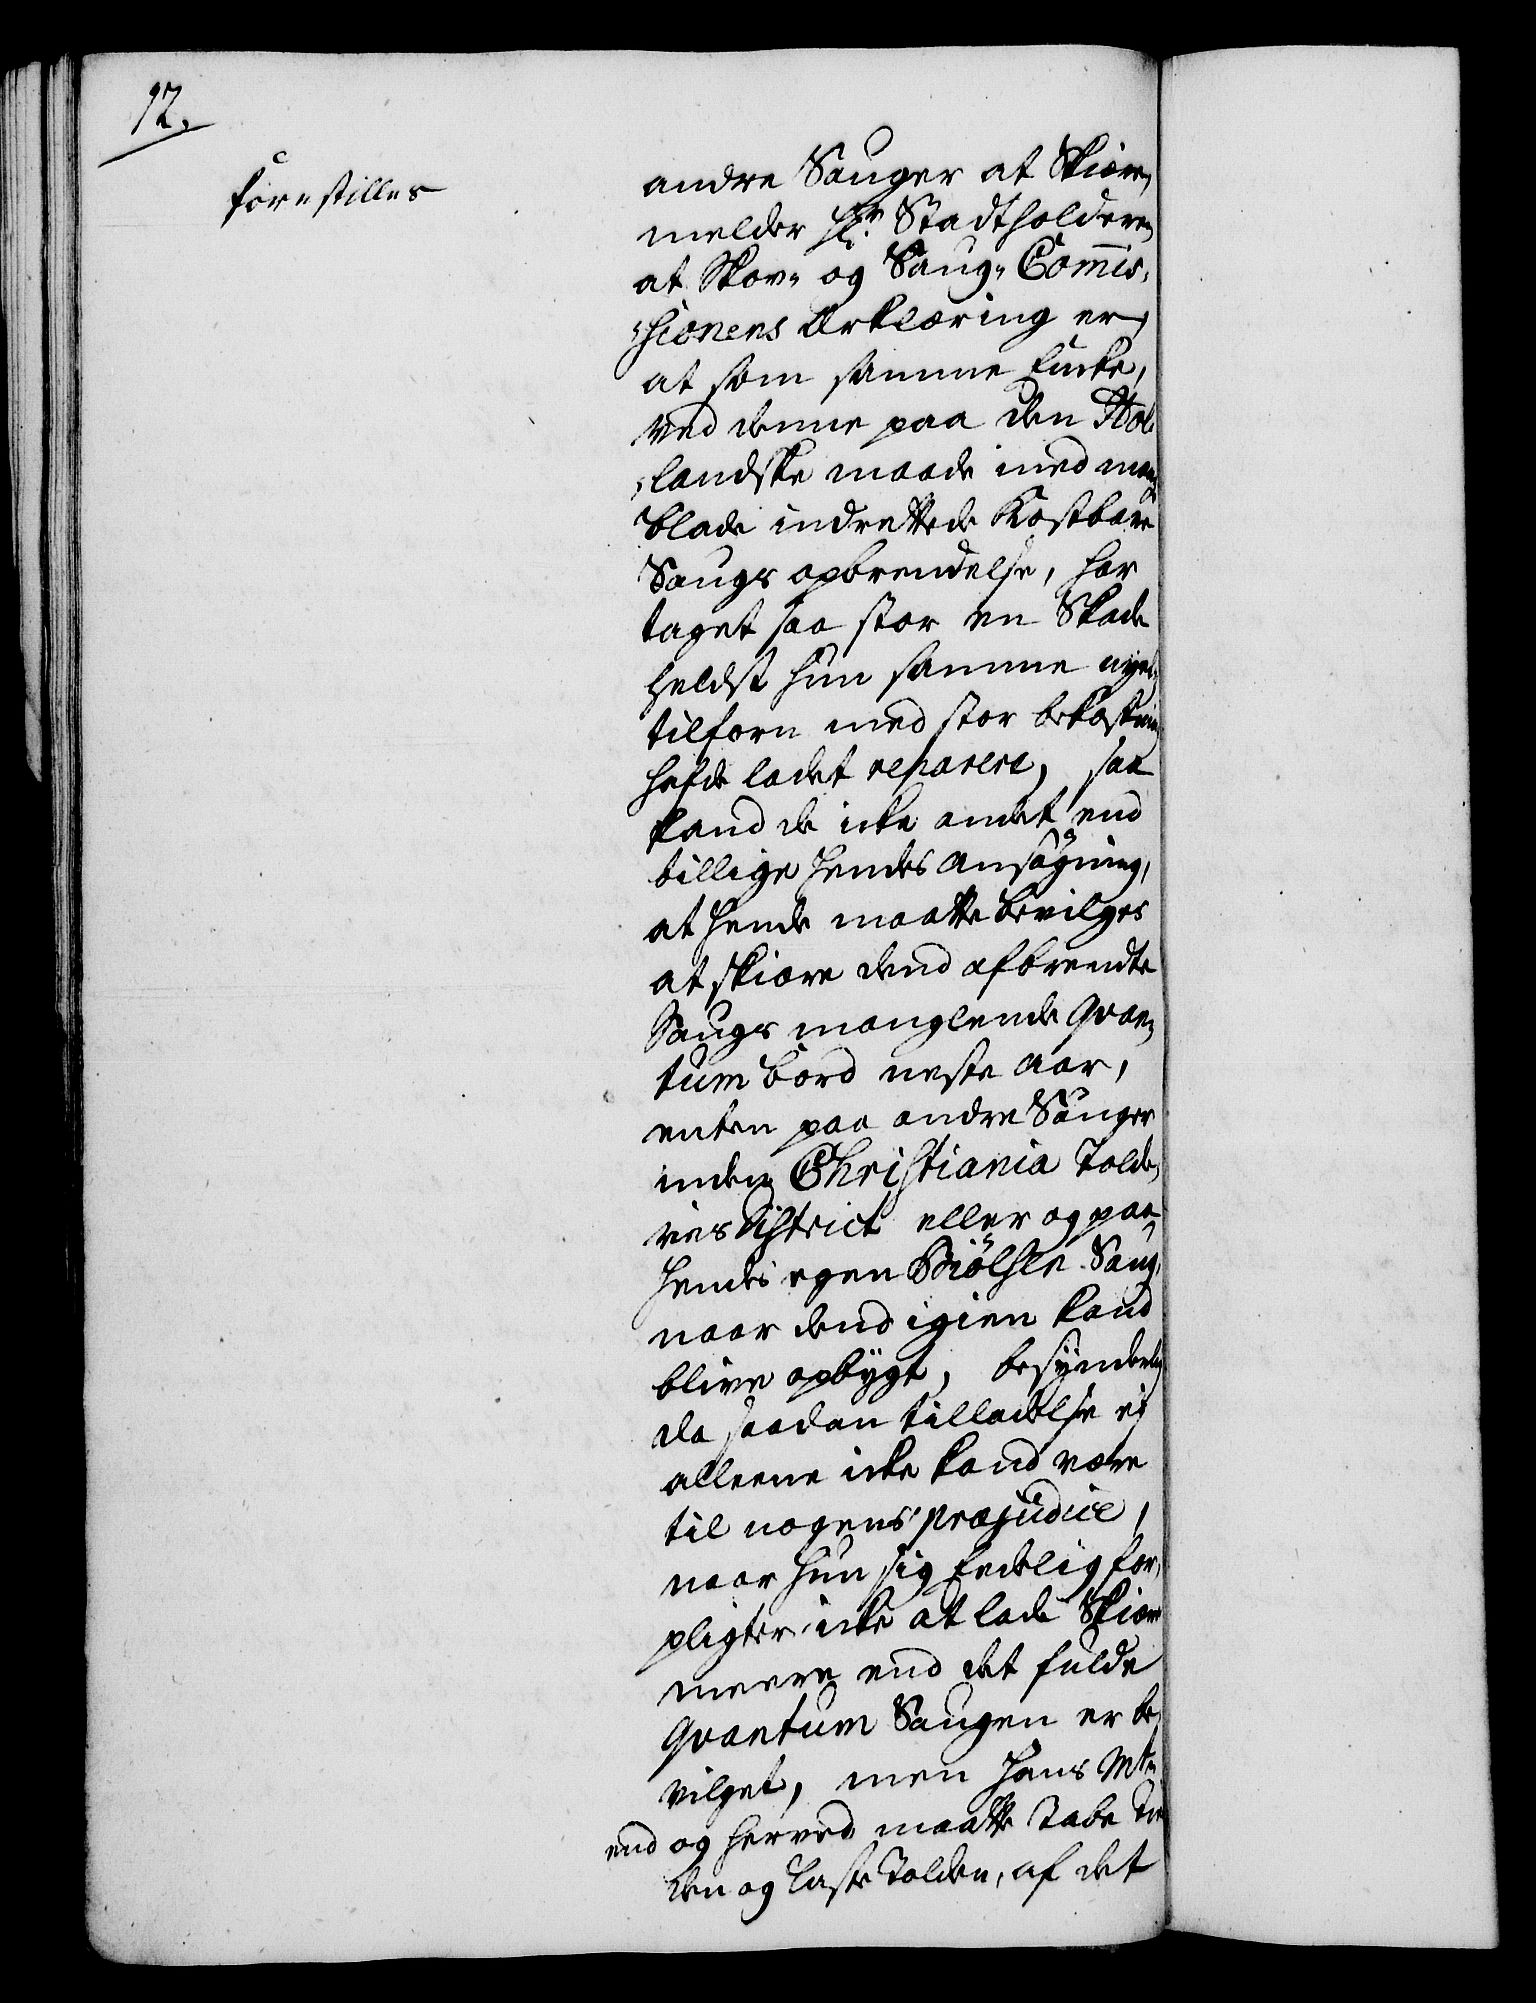 12.
forestilles
andre Sauger at Skiære,
melder Hr. Stadtholderen
at Skov- og Saug-Commis-
sionens Erklæring er,
at som samme Encke,
ved denne paa den Hol-
landske maade med mange
blade indrettede Kostbare
Saugs opbrendelse, har
taget saa stor en Skade
heldst hun samme nyel.
tilforn med stor bekostning
hafde ladet reparere, saa
kand de icke andet end
billige hendes ansøgning,
at hende maatte bevilges
at skiære dend afbrendte
Saugs manglende Qvan-
tum bord neste aar,
enten paa andre Sauger
inden Christiania Tolde-
ries District eller og paa
hendes egen Biölsen Saug,
naar dend igien kand
blive opbygt, besynderlig
da saadan tilladelse ej
alleene icke kand være
til nogens præjudice,
naar hun sig Eedelig for-
pligter icke at lade Skiære
meere end det fulde
Qvantum Saugen er be-
vilget, men Hans Mt.
end og herved maatte Tabe Tien-
den og Laste Tolden, af det